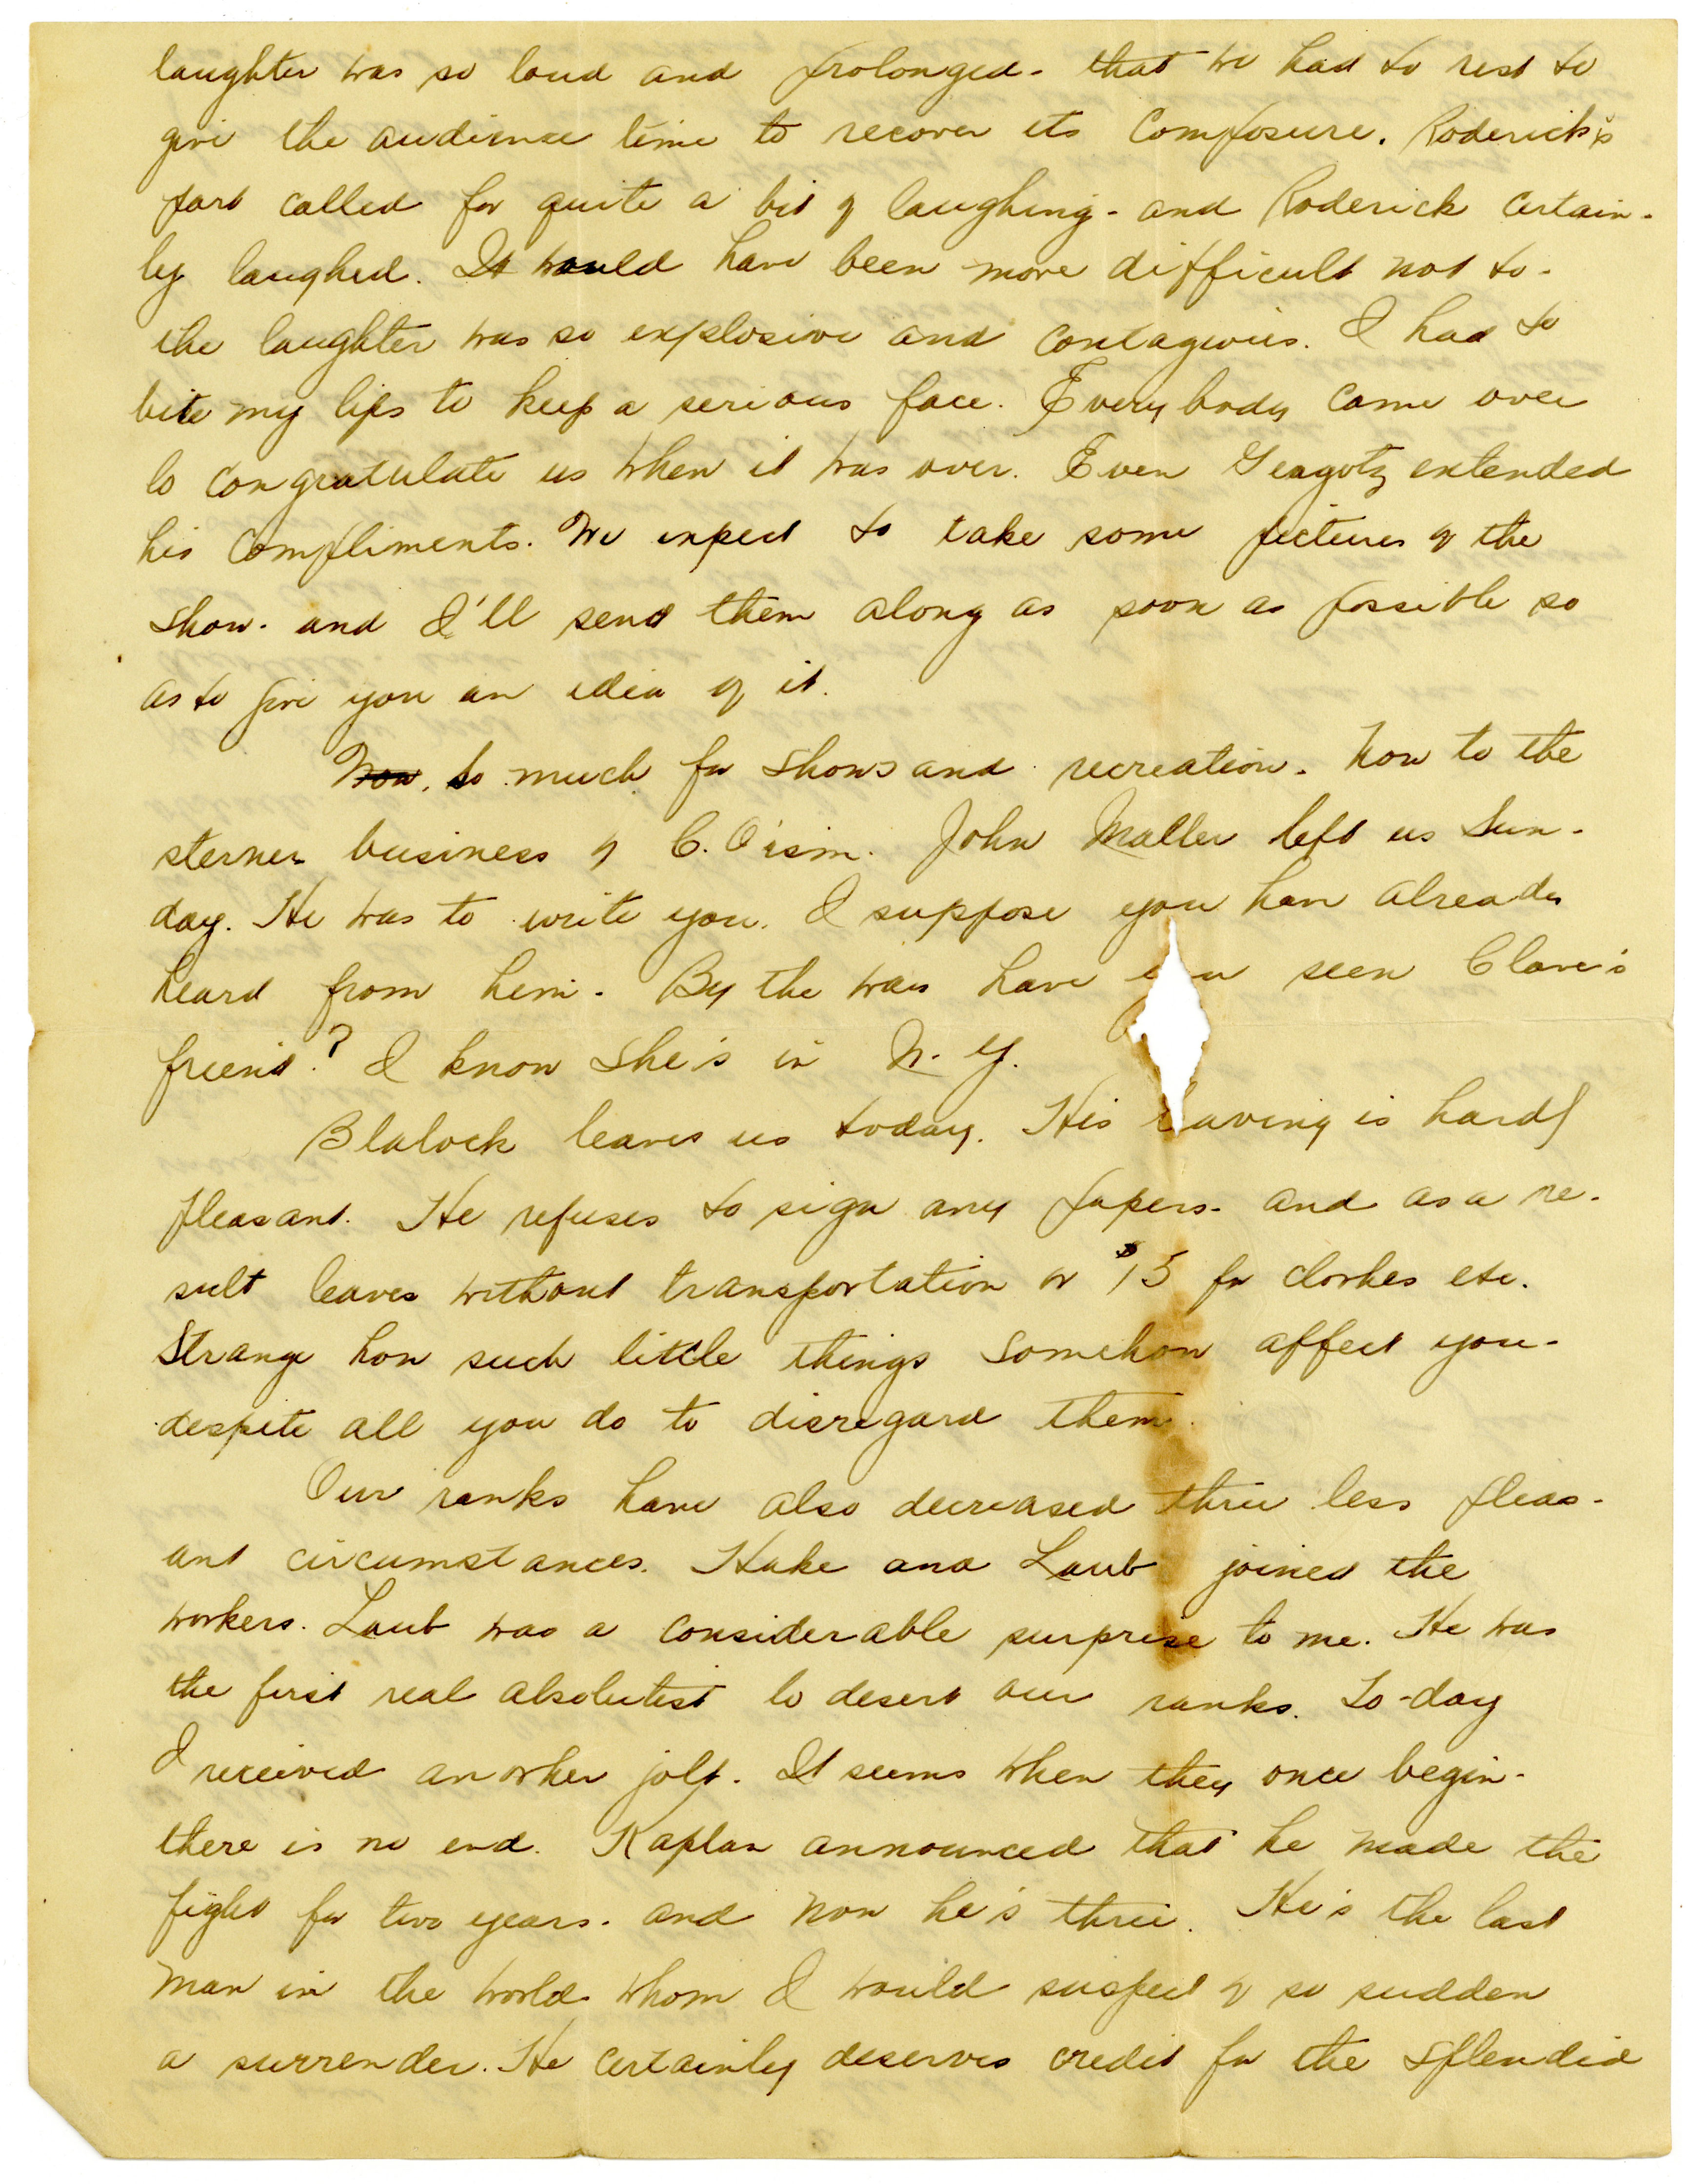 laughter was so loud and prolonged - that we had to rest to
give the audience time to recover its composure. Roderick's
part called for quite a bit of laughing - and Roderick certain-
ly laughed. It would have been more difficult not to -
the laughter was so explosive and contagious. I had to
bite my lips to keep a serious face. Everybody came over
to congratulate us when it was over. Even extended
his compliments. We expect to take some pictures of the
show - and I'll send them along as soon as possible so
as to give you an idea of it.
Now, so much for shows and recreation. Now to the
sterner business of C.O'ism. John Maller left us Sun-
day. He was to write you. I suppose you have already
heard from him. By the way have you seen Clave's
friend? I know she's in N.Y.
Blalock leaves us today. His leaving is hardly
pleasant. He refuses to sign any papers - and as a re-
sult leaves without transportation or $15 for clothes etc.
Strange how such little things somehow affect you -
despite all you do to disregard them.
Our ranks have also decreased thru less pleas-
ant circumstances. Hake and Laub joined the
workers. Laub was a considerable surprise to me. He was
the first real absolutist to desert our ranks. To-day
I received another jolt. It seems when they once begin -
there is no end. Kaplan announced that he made the
fight for two years - and now he's three. He's the last
man in the world whom I would suspect of so sudden
a surrender. He certainly deserves credit for the splendid